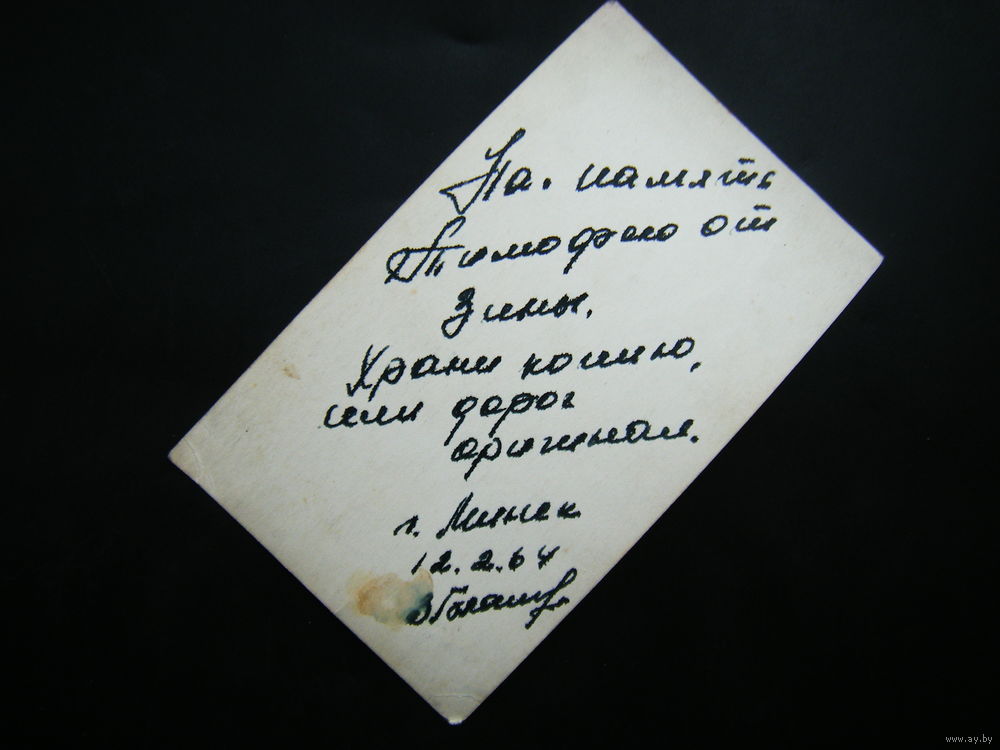 На. память
Тимофею от
Зины.
Храни копию,
или дорог
оригинал.
г. Минск
12.2.64
www.ay.by